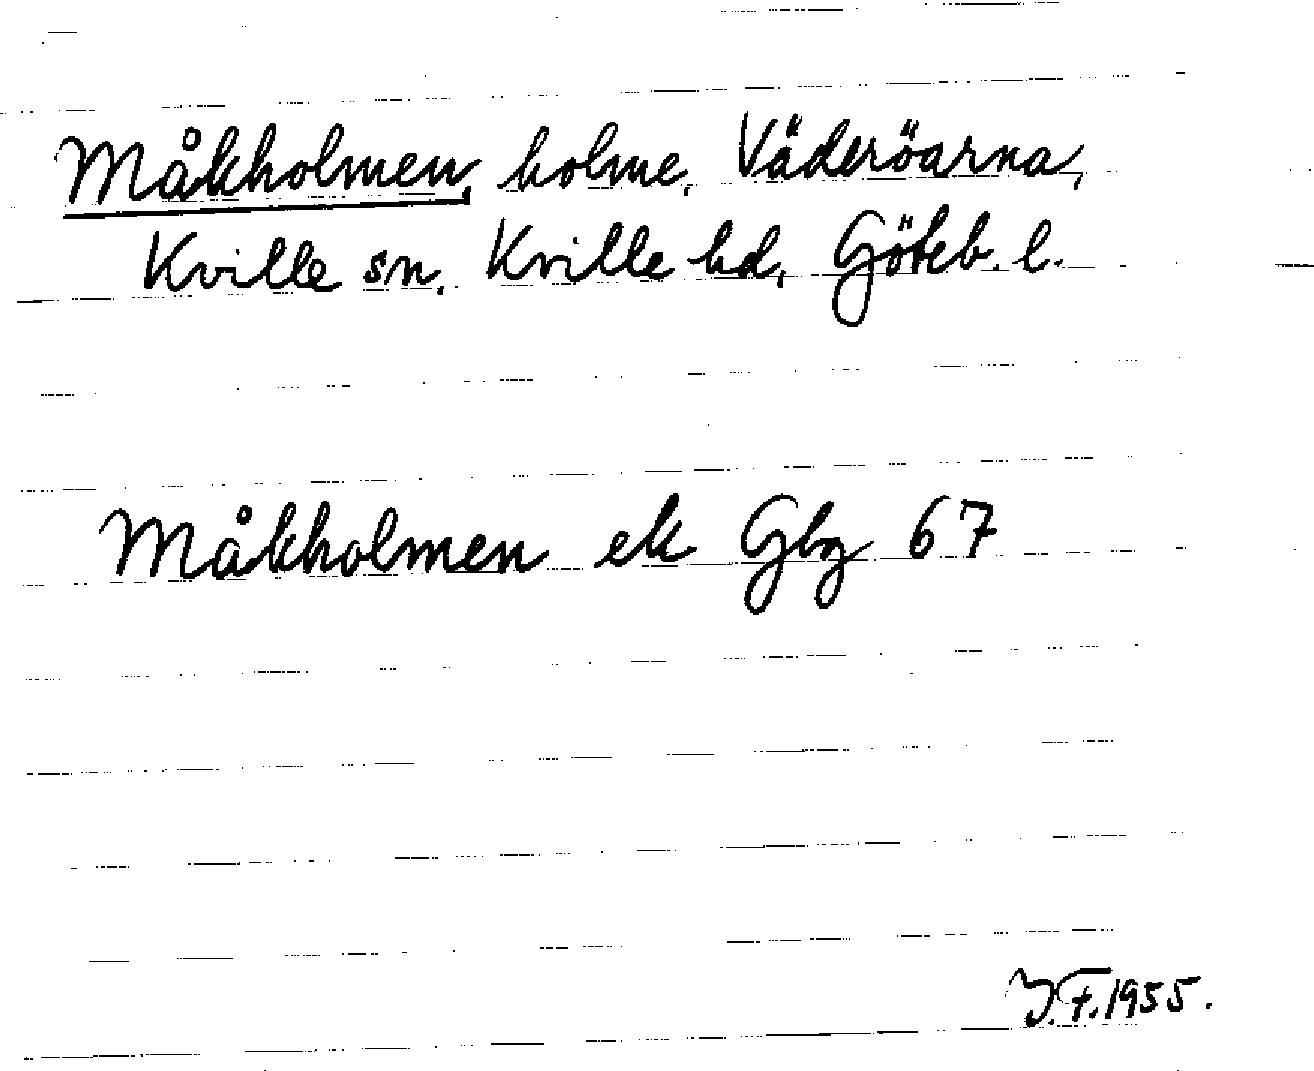 Måkholmen, holme, Väderöarna,
Kville sn, Kville hd, Göteb. l.
Måkholmen ek Gbg 67
J.F.1955.